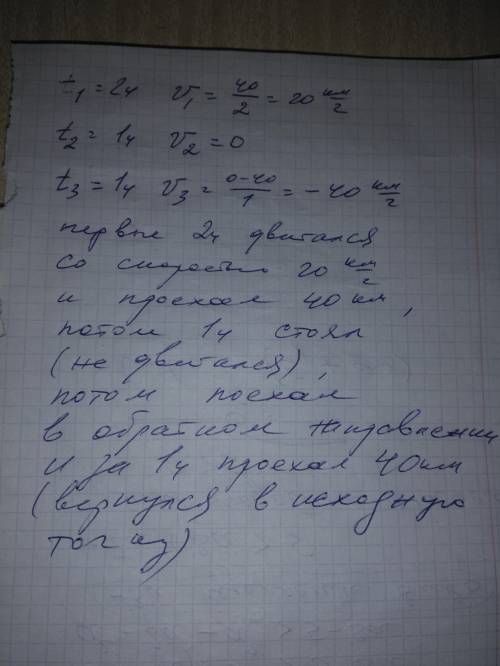 t₁ = 2ч v₁ = 40/2 = 20 км/ч
t₂ = 1ч v₂ = 0
t₃ = 1ч v₃ = 0-40/1 = -40 км/ч
первые 2ч двигался
со скоростью 20 км/ч
и проехал 40 км,
потом 1ч стоял
(не двигался),
потом поехал
в обратном направлении
и за 1ч проехал 40 км
(вернулся в исходную
точку)